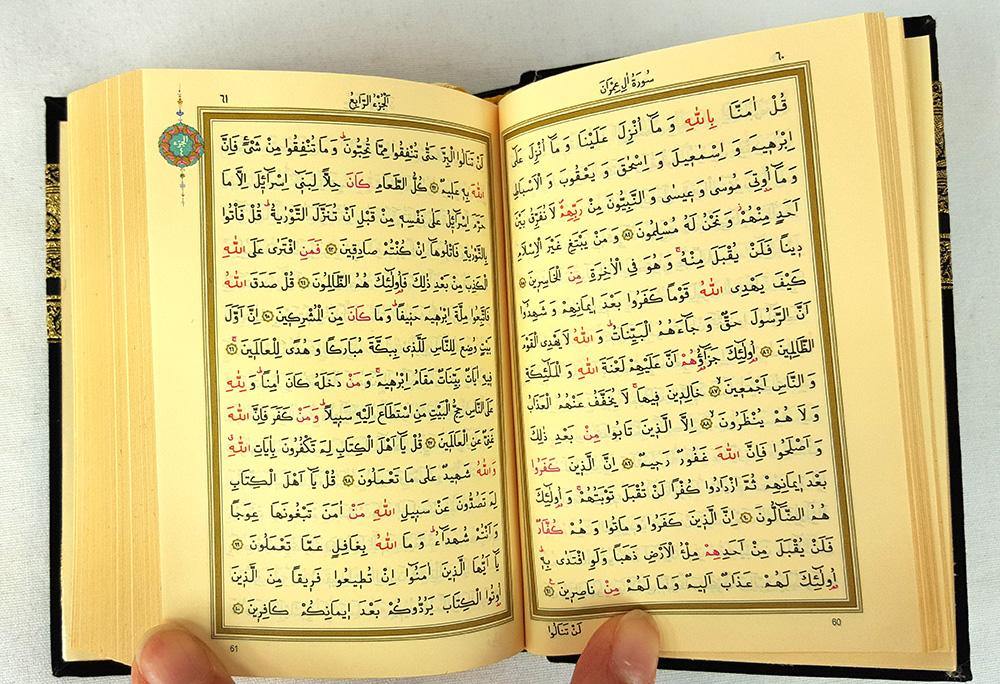 ٦٠
سُورَةُ اٰلِ عِمْرَانَ
قُلْ اٰمَنَّا بِاللّٰهِ وَ مَٓا اُنْزِلَ عَلَيْنَا وَ مَٓا اُنْزِلَ عَلٰٓى
اِبْرٰهِيمَ وَ اِسْمٰعِيلَ وَ اِسْحٰقَ وَ يَعْقُوبَ وَ الْاَسْبَاطِ
وَ مَٓا اُو۫تِيَ مُوسٰى وَ عِيسٰى وَ النَّبِيُّونَ مِنْ رَبِّهِمْ لَا نُفَرِّقُ بَيْنَ
اَحَدٍ مِنْهُمْ وَ نَحْنُ لَهُ مُسْلِمُونَ ﴿٨٤﴾ وَ مَنْ يَبْتَغِ غَيْرَ الْاِسْلَامِ
دِيناً فَلَنْ يُقْبَلَ مِنْهُ وَ هُوَ فِي الْاٰخِرَةِ مِنَ الْخَاسِرِينَ ﴿٨٥﴾
كَيْفَ يَهْدِي اللّٰهُ قَوْماً كَفَرُوا بَعْدَ اِيمَانِهِمْ وَ شَهِدُٓوا
اَنَّ الرَّسُولَ حَقٌّ وَ جَٓاءَهُمُ الْبَيِّنَاتُ وَ اللّٰهُ لَا يَهْدِي الْقَوْمَ
الظَّالِمِينَ ﴿٨٦﴾ اُو۬لٰٓئِكَ جَزَٓاؤُ۬هُمْ اَنَّ عَلَيْهِمْ لَعْنَةَ اللّٰهِ وَ الْمَلٰٓئِكَةِ
وَ النَّاسِ اَجْمَعِينَ ﴿٨٧﴾ خَالِدِينَ فِيهَا لَا يُخَفَّفُ عَنْهُمُ الْعَذَابُ
وَ لَا هُمْ يُنْظَرُونَ ﴿٨٨﴾ اِلَّا الَّذِينَ تَابُوا مِنْ بَعْدِ ذٰلِكَ
وَ اَصْلَحُوا فَاِنَّ اللّٰهَ غَفُورٌ رَحِيمٌ ﴿٨٩﴾ اِنَّ الَّذِينَ كَفَرُوا
بَعْدَ اِيمَانِهِمْ ثُمَّ ازْدَادُوا كُفْراً لَنْ تُقْبَلَ تَوْبَتُهُمْ وَ اُو۬لٰٓئِكَ
هُمُ الضَّٓالُّونَ ﴿٩٠﴾ اِنَّ الَّذِينَ كَفَرُوا وَ مَاتُوا وَ هُمْ كُفَّارٌ
فَلَنْ يُقْبَلَ مِنْ اَحَدِهِمْ مِلْءُ الْاَرْضِ ذَهَباً وَ لَوِ افْتَدٰى بِهِ
اُو۬لٰٓئِكَ لَهُمْ عَذَابٌ اَلِيمٌ وَ مَا لَهُمْ مِنْ نَاصِرِينَ ﴿٩١﴾
لَنْ تَنَالُوا
60
اَلْجُزْءُ الرَّابِعُ
٦١
لَنْ تَنَالُوا الْبِرَّ حَتّٰى تُنْفِقُوا مِمَّا تُحِبُّونَ وَ مَا تُنْفِقُوا مِنْ شَيْءٍ فَاِنَّ
اللّٰهَ بِهِ عَلِيمٌ ﴿٩٢﴾ كُلُّ الطَّعَامِ كَانَ حِلاًّ لِبَنِٓي اِسْرَٓائِلَ اِلَّا مَا
حَرَّمَ اِسْرَٓائِلُ عَلٰى نَفْسِهِ مِنْ قَبْلِ اَنْ تُنَزَّلَ التَّوْرٰيةُ قُلْ فَأْتُوا
بِالتَّوْرٰيةِ فَاتْلُوهَٓا اِنْ كُنْتُمْ صَادِقِينَ ﴿٩٣﴾ فَمَنِ افْتَرٰى عَلَى اللّٰهِ
الْكَذِبَ مِنْ بَعْدِ ذٰلِكَ فَاُو۬لٰٓئِكَ هُمُ الظَّالِمُونَ ﴿٩٤﴾ قُلْ صَدَقَ اللّٰهُ
فَاتَّبِعُوا مِلَّةَ اِبْرٰهِيمَ حَنِيفاً وَ مَا كَانَ مِنَ الْمُشْرِكِينَ ﴿٩٥﴾ اِنَّ اَوَّلَ
بَيْتٍ وُضِعَ لِلنَّاسِ لَلَّذِي بِبَكَّةَ مُبَارَكاً وَ هُدًى لِلْعَالَمِينَ ﴿٩٦﴾
فِيهِ اٰيَاتٌ بَيِّنَاتٌ مَقَامُ اِبْرٰهِيمَ وَ مَنْ دَخَلَهُ كَانَ اٰمِناً وَ لِلّٰهِ
عَلَى النَّاسِ حِجُّ الْبَيْتِ مَنِ اسْتَطَاعَ اِلَيْهِ سَبِيلاً وَ مَنْ كَفَرَ فَاِنَّ اللّٰهَ
غَنِيٌّ عَنِ الْعَالَمِينَ ﴿٩٧﴾ قُلْ يَٓا اَهْلَ الْكِتَابِ لِمَ تَكْفُرُونَ بِاٰيَاتِ اللّٰهِ
وَ اللّٰهُ شَهِيدٌ عَلٰى مَا تَعْمَلُونَ ﴿٩٨﴾ قُلْ يَٓا اَهْلَ الْكِتَابِ
لِمَ تَصُدُّونَ عَنْ سَبِيلِ اللّٰهِ مَنْ اٰمَنَ تَبْغُونَهَا عِوَجاً
وَ اَنْتُمْ شُهَدَٓاءُ وَ مَا اللّٰهُ بِغَافِلٍ عَمَّا تَعْمَلُونَ ﴿٩٩﴾
يَٓا اَيُّهَا الَّذِينَ اٰمَنُٓوا اِنْ تُطِيعُوا فَرِيقاً مِنَ الَّذِينَ
اُو۫تُوا الْكِتَابَ يَرُدُّوكُمْ بَعْدَ اِيمَانِكُمْ كَافِرِينَ ﴿١٠٠﴾
61